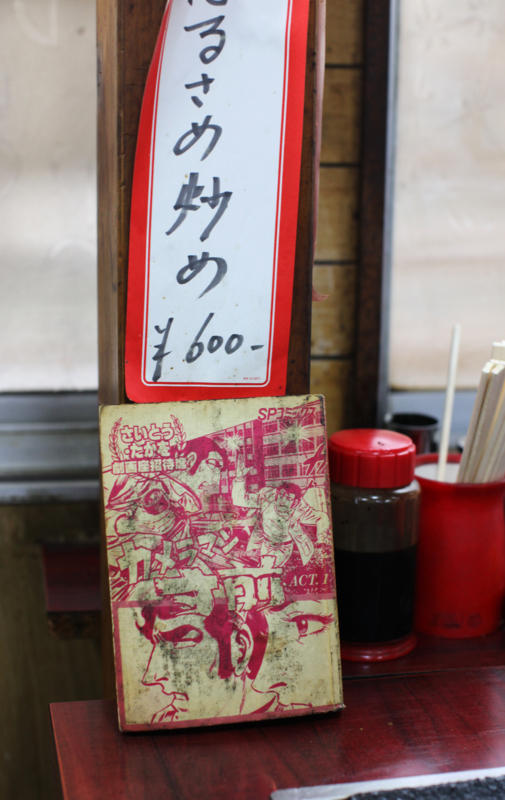 はるさめ炒め
¥600-
SPコミックス
さいとう
たかを
劇画座招待席
カメラマン
ACT. 1